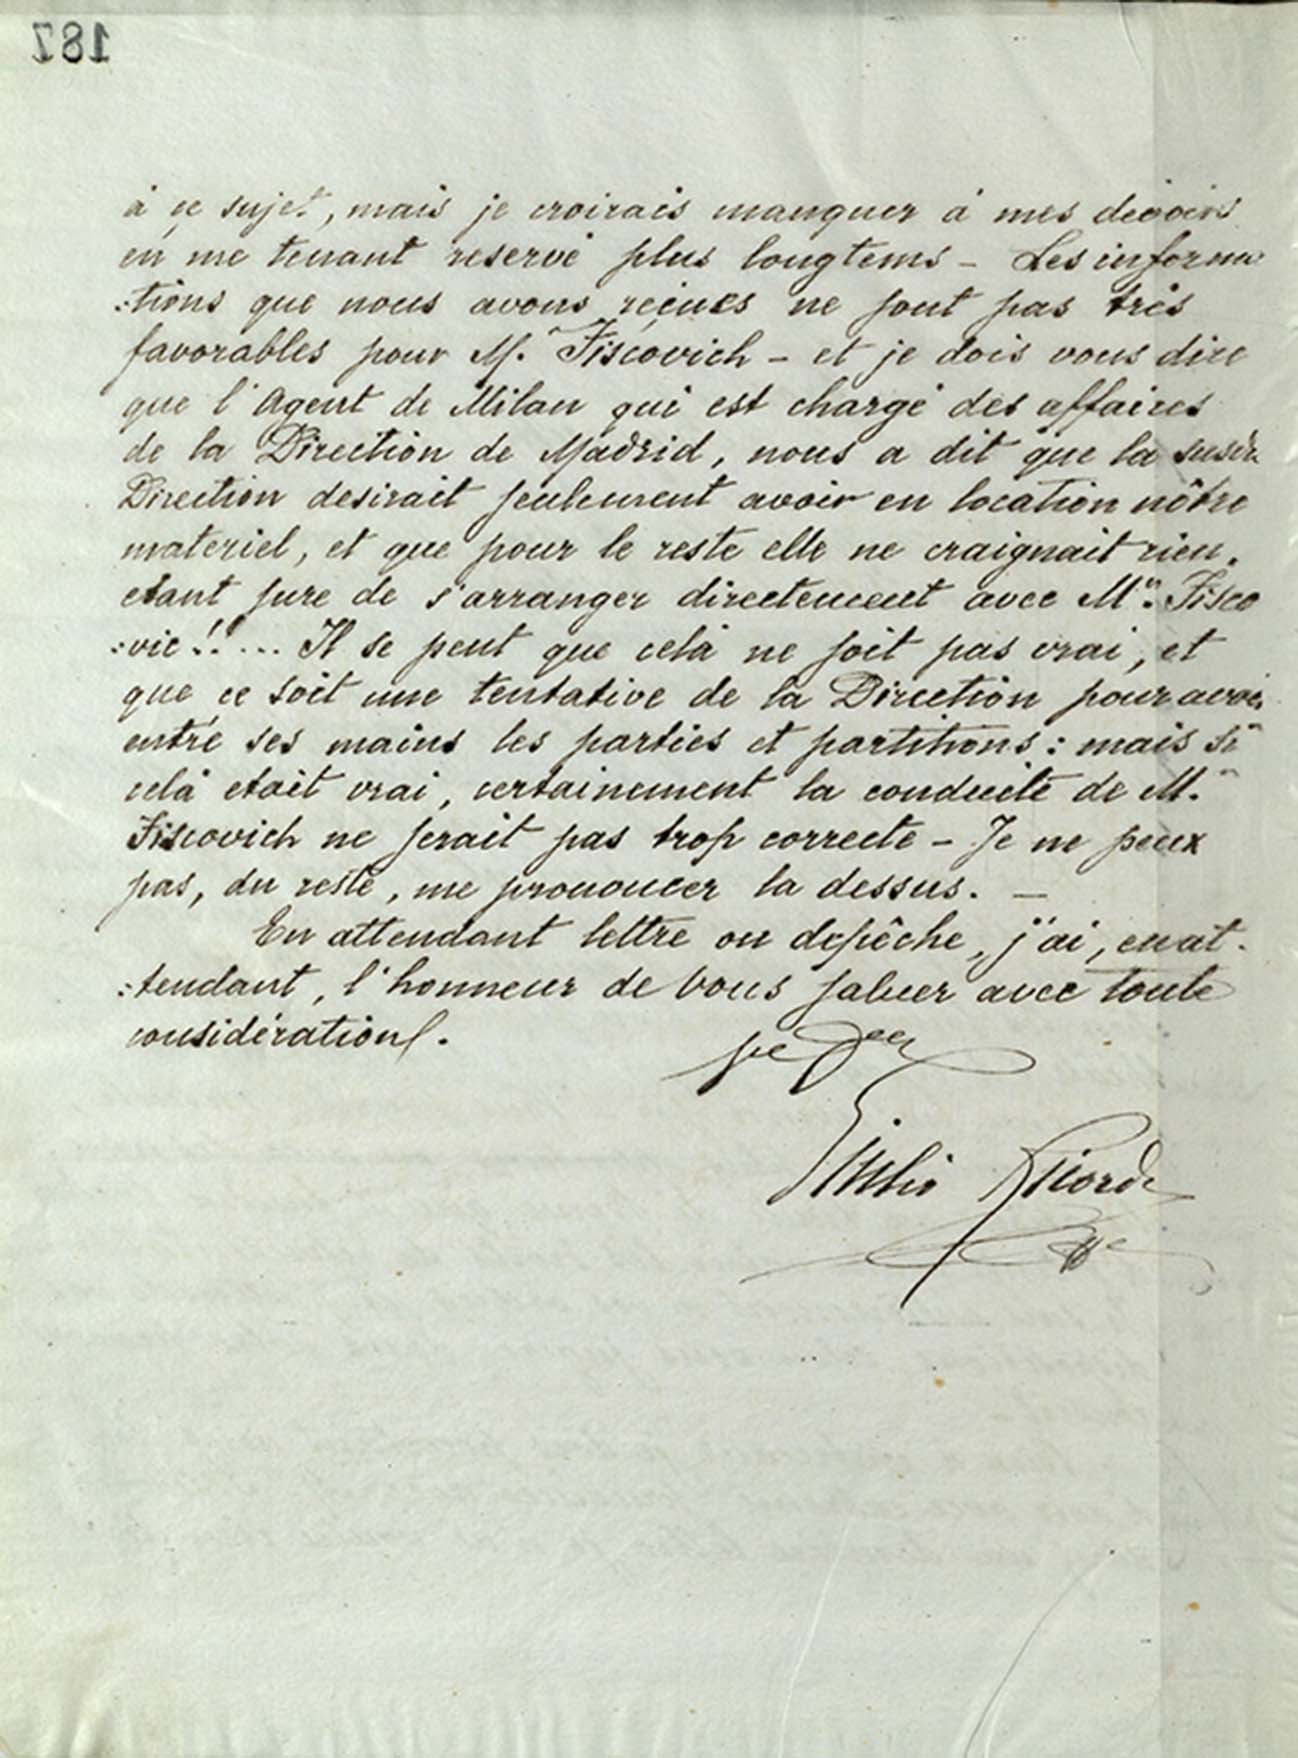 187
à ce sujet, mais je croirais manquer à mes devoirs
en me tenant reservé plus longtems – Les informa
:tions que nous avons reçues ne sont pas très
favorables pour M. Fiscovich – et je dois vous dire
que l'Agent de Milan qui est chargé des affaires
de la Direction de Madrid, nous a dit que la
Direction desirait seulement avoir en location nôtre
materiel, et que pour le reste elle ne craignait rien,
etant sure de s'arranger directement avec Mr. Fisco
:vic!!... Il se peut que celà ne soit pas vrai, et
que ce soit une tentative de la Direction pour avoir
entre ses mains les parties et partitions: mais si
celà etait vrai, certainement la conduite de M.
Fiscovich ne serait pas trop correcte – Je ne peux
pas, du reste, me prononcer la dessus. —
En attendant lettre ou depêche, j'ai, en at-
:tendant, l'honneur de vous saluer avec toute
considération.
Giulio Ricordi